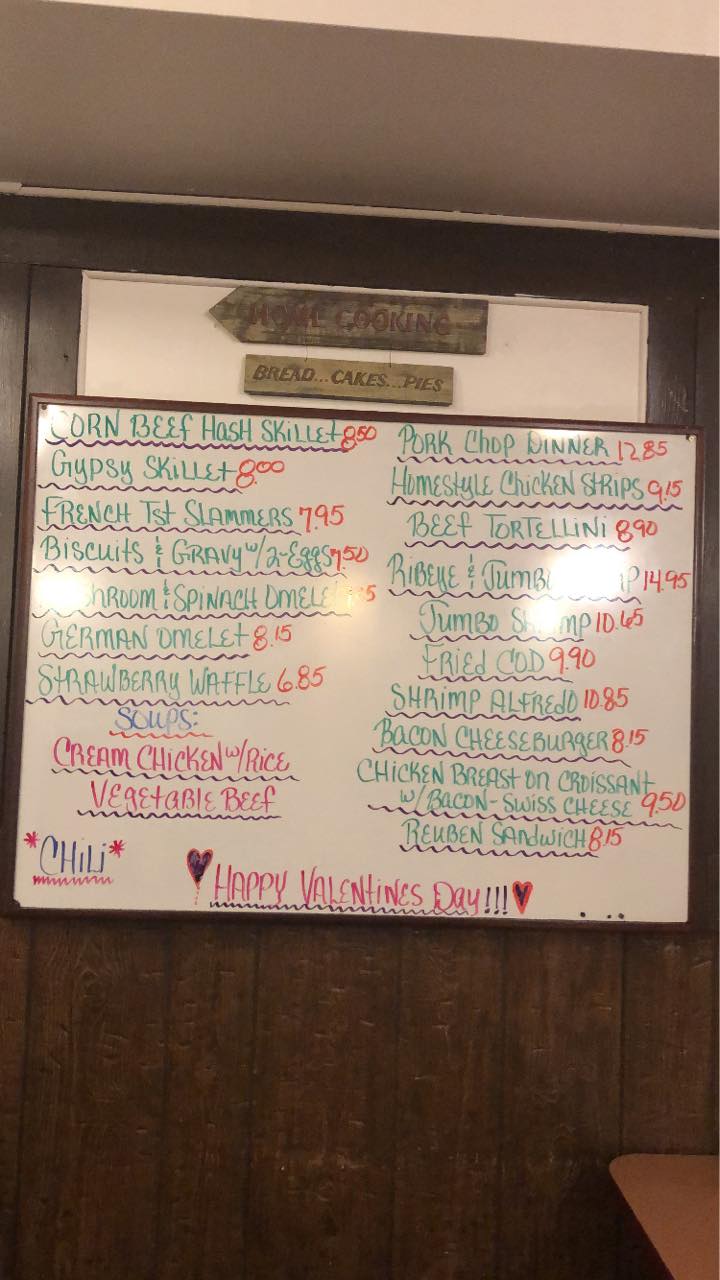 HOME COOKING
BREAD...CAKES...PIES
CORN BEEF HASH SKILLET 8.50
GYPSY SKILLET 8.00
FRENCH TST SLAMMERS 7.95
BISCUITS & GRAVY W/2-EGGS 7.50
& SPINACH
GERMAN OMELET 8.15
STRAWBERRY WAFFLE 6.85
SOUPS:
CREAM CHICKEN W/RICE
VEGETABLE BEEF
*CHILI*
PORK CHOP DINNER 12.85
HOMESTYLE CHICKEN STRIPS 9.15
BEEF TORTELLINI 8.90
RIBEYE & 14.95
JUMBO SHRIMP 10.65
FRIED COD 9.90
SHRIMP ALFREDO 10.85
BACON CHEESEBURGER 8.15
CHICKEN BREAST ON CROISSANT
W/BACON-SWISS CHEESE 9.50
REUBEN SANDWICH 8.15
HAPPY VALENTINES DAY!!!